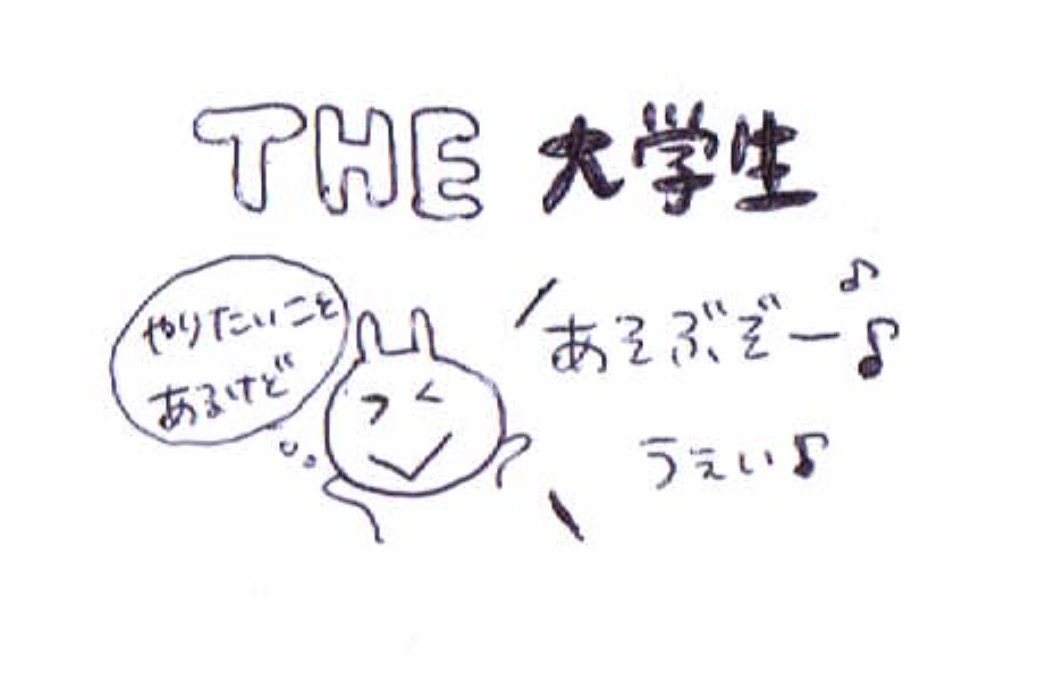 THE 大学生
やりたいこと
あるけど
あそぶぞー♪♪
うぇい♪